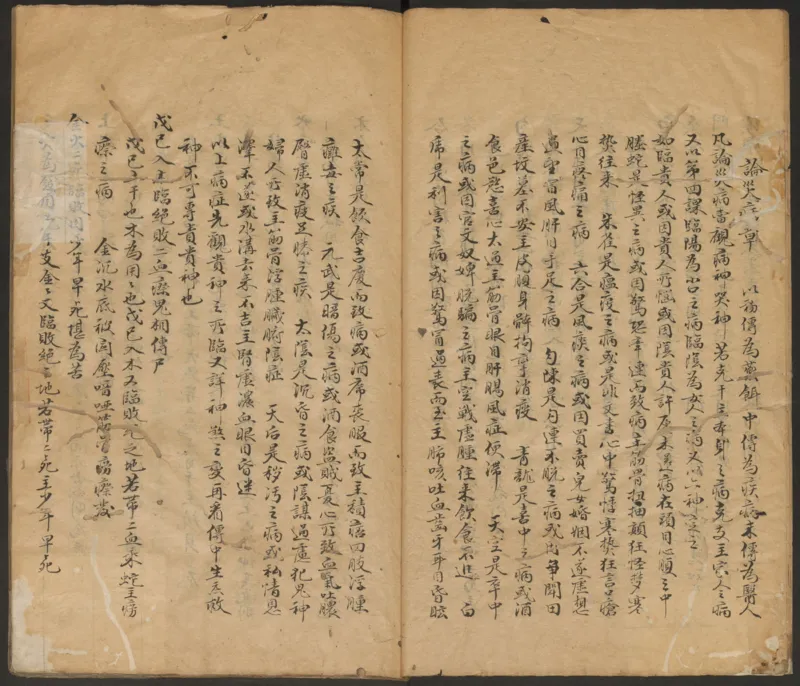 論災病章 以初傳為藥餌中傳為疾病末傳為醫人
凡論災病當觀病神哭神若克干主本身之病克支主宅人之病
又以第四課臨陽為占之病臨陰為女人之病又以六神言之
如臨貴人或因貴人所惱或因陰貴人許原未還病在頭目心腹之中
螣蛇是怪異之病或因驚恐牽連而致病主筋骨抽顛狂怪夢寒
熱往來 朱雀是瘟疫之病或是非文書心中驚惶寒熱狂言口瘡
心目疼痛之病 六合是風疾之病或因買賣兒女婚姻不遂虛想
過望冒風肝目手足之病 勾陳是勾連不脫之病或出爭鬪田
產墳墓不安主皮腹身骨拘攣消疫 青龍是喜中之病或酒
食邑惹喜心大過主筋骨眼目肝腸風症便滯 天空是卒中
之病或因官文奴婢脫騙之病主空戰虛腫往來飲食不進 白
虎是刑害之病或因驚冒過喪而至主肺咳吐血齒牙耳目昏眩
太常是飲食吉慶而致病或酒席喪服而致主積癌四肢浮腫
癱毒之疾 元武是暗傷之病或酒食盜賊憂心所致血氣吐膿
腎虛消疫足膝之疾 太陰是沉昏之病或陰謀過處犯鬼神
婦人所致主筋骨浮腫臟腑陰症 天后是穢污之病或私情恩
澤不遂或水溝去來不吉主腎虛濃血眼目昏迷
以上病症先觀貴神之所臨又詳神煞之變再看傳中生克敗
神不可專責貴神也
戊己入木臨絕敗二血療鬼相傳尸
戊己土干也木為用用也戊己入木又臨敗死之地若帶二血乘蛇主癆
療之病 金沉水底被関壓喑啞筋骨癆療發
金火二 臨敗因少年早死堪為苦
火為 用 支金金又臨敗絕之地若帶二死主少年早死